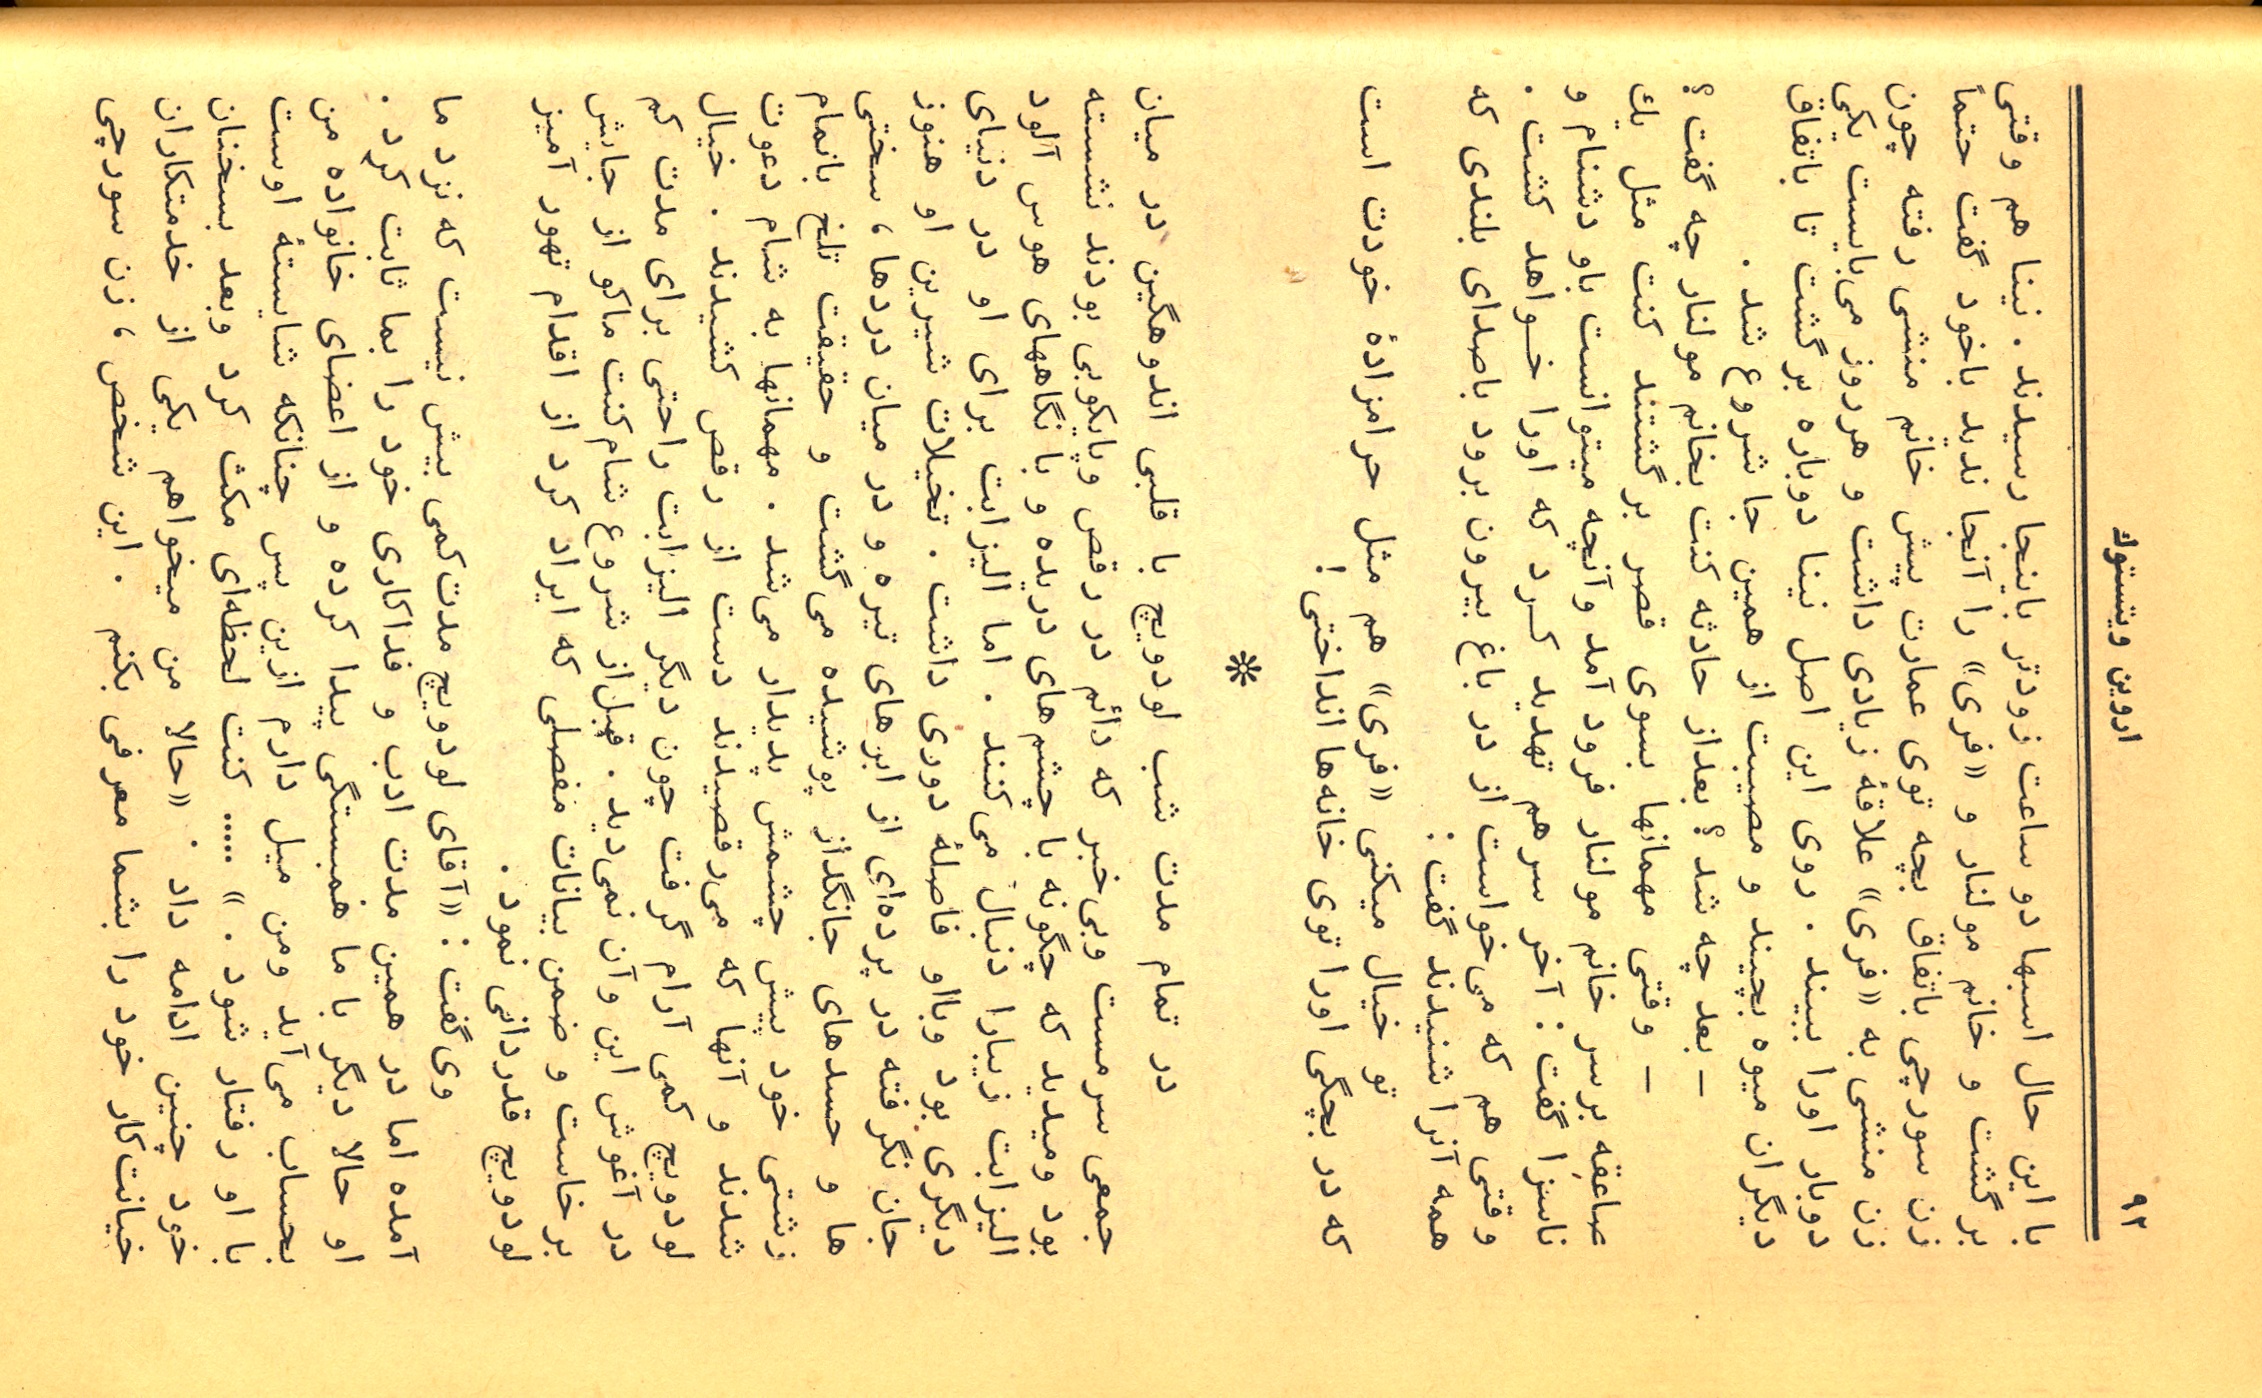 ۹۲
اروین ویتستوك
با این حال اسبها دو ساعت زودتر باینجا رسیدند . نینا هم وقتی
برگشت و خانم مولنار و «فری» را آنجا ندید باخود گفت حتماً
زن سورچی باتفاق بچه توی عمارت پیش خانم منشی رفته چون
زن منشی به «فری» علاقهٔ زیادی داشت و هرروز می‌بایست یکی
دوبار اورا ببیند . روی این اصل نینا دوباره برگشت تا باتفاق
دیگران میوه بچیند و مصیبت از همین جا شروع شد .
— بعد چه شد ؟ بعداز حادثه کنت بخانم مولنار چه گفت ؟
— وقتی مهمانها بسوی قصر برگشتند کنت مثل یك
صاعقه برسر خانم مولنار فرود آمد وآنچه میتوانست باو دشنام و
ناسزا گفت : آخر سرهم تهدید کـرد که اورا خـواهد کشت .
وقتی هم که می‌خواست از در باغ بیرون برود باصدای بلندی که
همه آنرا شنیدند گفت :
تو خیال میکنی «فری» هم مثل حرامزادهٔ خودت است
که در بچگی اورا توی خانه‌ها انداختی !
❊
در تمام مدت شب لودویچ با قلبی اندوهگین در میان
جمعی سرمست وبی‌خبر که دائم در رقص وپایکوبی بودند نشسته
بود ومیدید که چگونه با چشم‌های دریده و با نگاههای هوس آلود
الیزابت زیبارا دنبال می‌کنند . اما الیزابت برای او در دنیای
دیگری بود وبااو فاصلهٔ دوری داشت . تخیلات شیرین او هنوز
جان نگرفته در پرده‌ای از ابرهای تیره و در میان دردها ، سختی
ها و حسدهای جانگداز پوشیده می‌گشت و حقیقت تلخ باتمام
زشتی خود پیش چشمش پدیدار می‌شد . مهمانها به شام دعوت
شدند و آنها که می‌رقصیدند دست از رقص کشیدند . خیال
لودویچ کمی آرام گرفت چون دیگر الیزابت راحتی برای مدت کم
در آغوش این وآن نمی‌دید . قبل‌از شروع شام کنت ماکو از جایش
برخاست و ضمن بیانات مفصلی که ایراد کرد از اقدام تهور آمیز
لودویچ قدردانی نمود .
وی گفت : «آقای لودویچ مدت‌کمی بیش نیست که نزد ما
آمده اما در همین مدت ادب و فداکاری خود را بما ثابت کرد .
او حالا دیگر با ما همبستگی پیدا کرده و از اعضای خانواده من
بحساب می‌آید ومن میل دارم ازین پس چنانکه شایستهٔ اوست
با او رفتار شود . » ..... کنت لحظه‌ای مکث کرد وبعد بسخنان
خود چنین ادامه داد . «حالا من میخواهم یکی از خدمتکاران
خیانت‌کار خود را بشما معرفی بکنم . این شخص ، زن سورچی